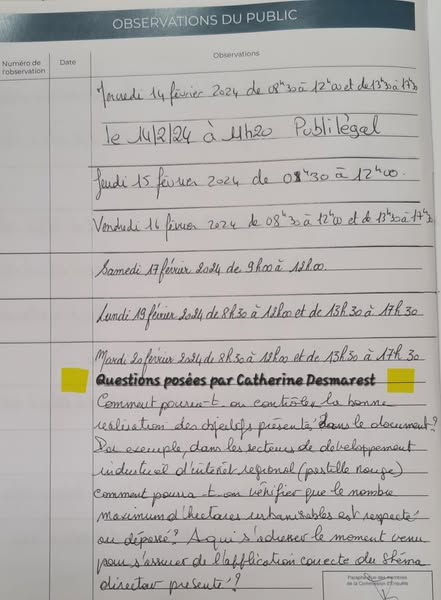 OBSERVATIONS DU PUBLIC
Numéro de l'observation
Date
Observations
Mercredi 14 février 2024 de 08h30 à 12h00 et de 13h30 à 17h30
le 14/2/24 à 11h20 Publilégal
Jeudi 15 février 2024 de 08h30 à 12h00.
Vendredi 16 février 2024 de 08h30 à 12h00 et de 13h30 à 17h30
Samedi 17 février 2024 de 9h00 à 12h00.
Lundi 19 février 2024 de 8h30 à 12h00 et de 13h30 à 17h30
Mardi 20 février 2024 de 8h30 à 12h00 et de 13h30 à 17h30
Questions posées par Catherine Desmarest
Comment pourra-t-on contrôler la bonne
réalisation des objectifs présentés dans le document?
Par exemple, dans les secteurs de développement
industriel d'intérêt régional (pastille rouge)
comment pourra-t-on vérifier que le nombre
maximum d'hectares urbanisables est respecté
ou dépassé? A qui s'adresser le moment venu
pour s'assurer de l'application correcte du Shéma
directeur présenté?
Paraphe d'un des membres
de la Commission d'Enquête